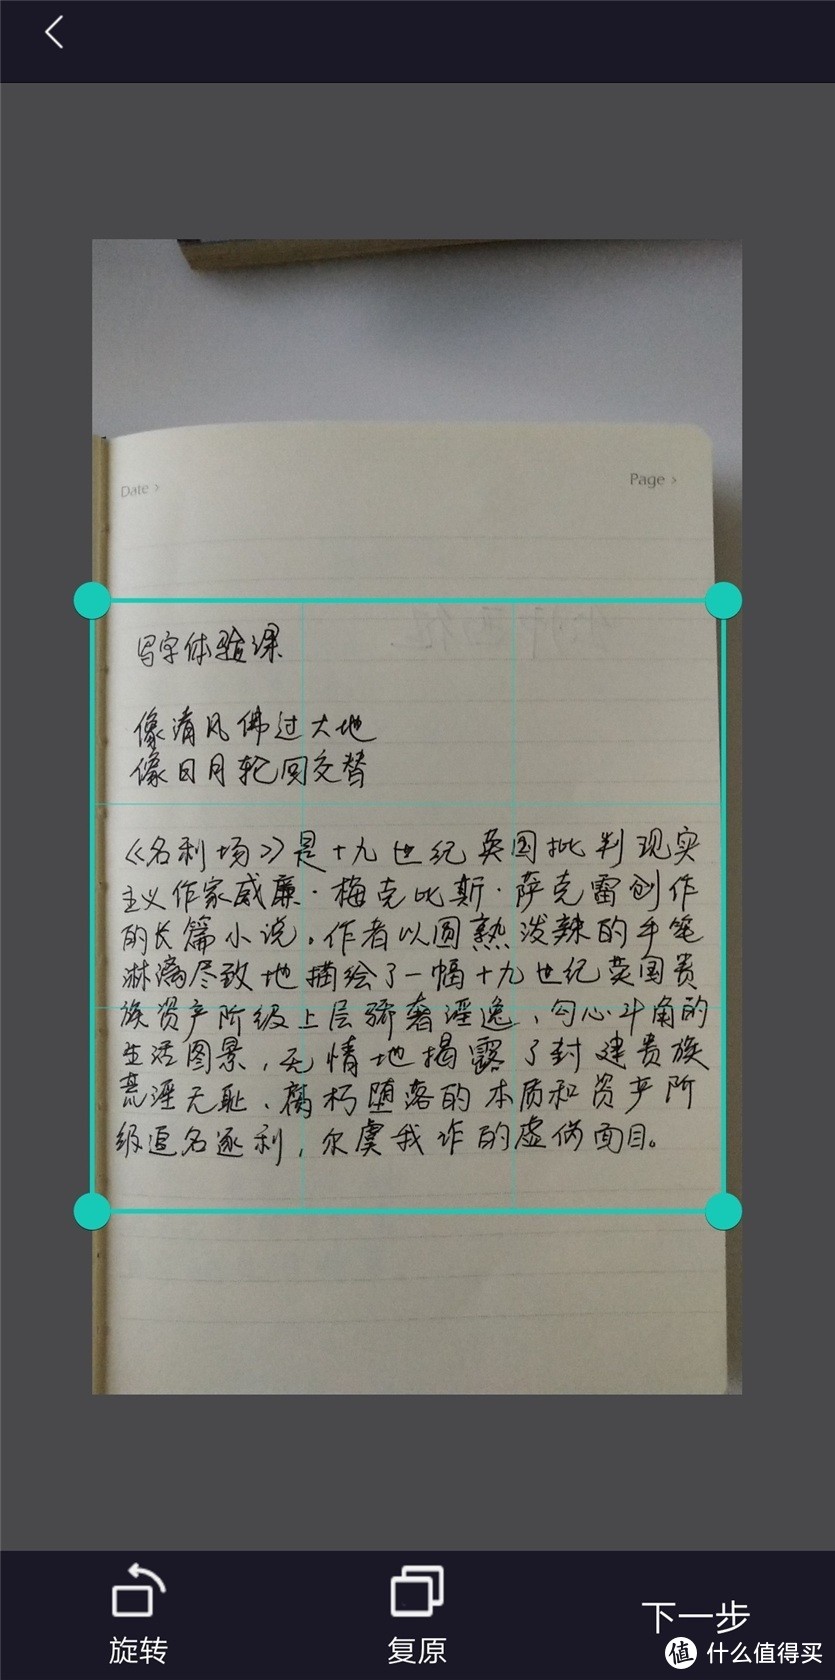 Date >
Page >
写字体验课
像清风佛过大地
像日月轮回交替
《名利场》是十九世纪英国批判现实
主义作家威廉·梅克比斯·萨克雷创作
的长篇小说。作者以圆熟泼辣的手笔
淋漓尽致地描绘了一幅十九世纪英国贵
族资产阶级上层骄奢淫逸、勾心斗角的
生活图景,无情地揭露了封建贵族
荒淫无耻、腐朽堕落的本质和资产阶
级追名逐利,尔虞我诈的虚伪面目。
旋转
复原
下一步
值 什么值得买